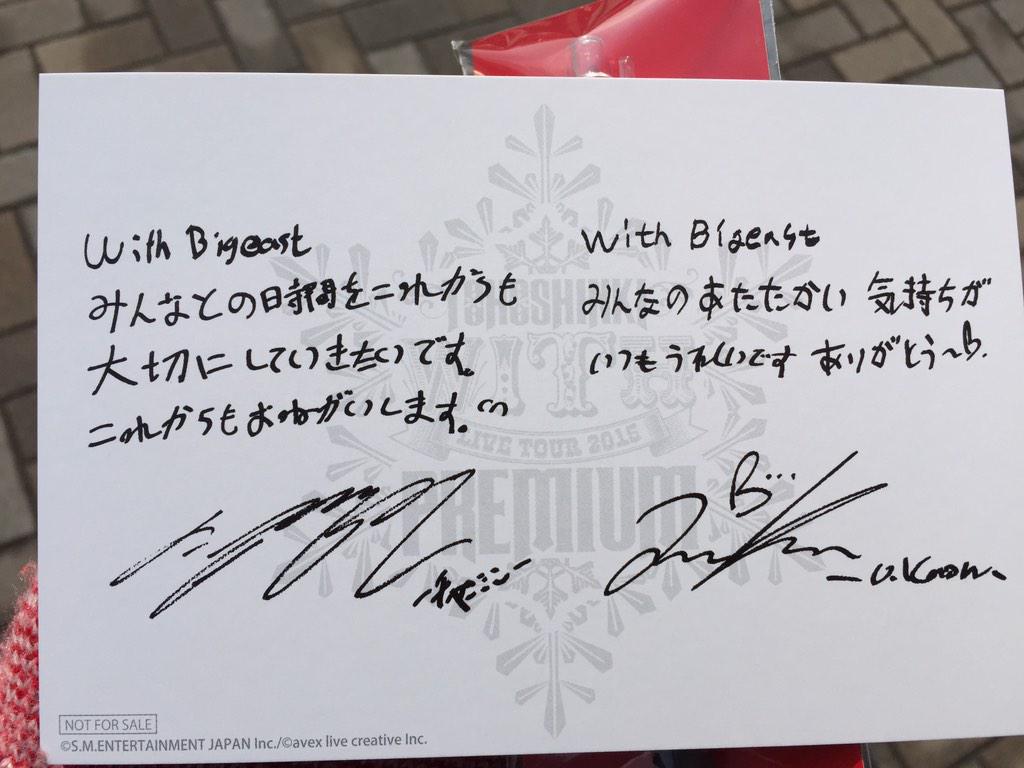 With Bigeast
みんなとの時間をこれからも
大切にしていきたいです。
これからもおねがいします。
With Bigeast
みんなのあたたかい 気持ちが
いつもうれしいです ありがとう~
TOHOSHINKI
WITH
LIVE TOUR 2015
PREMIUM
U.Know.
NOT FOR SALE
©S.M.ENTERTAINMENT JAPAN Inc./©avex live creative Inc.